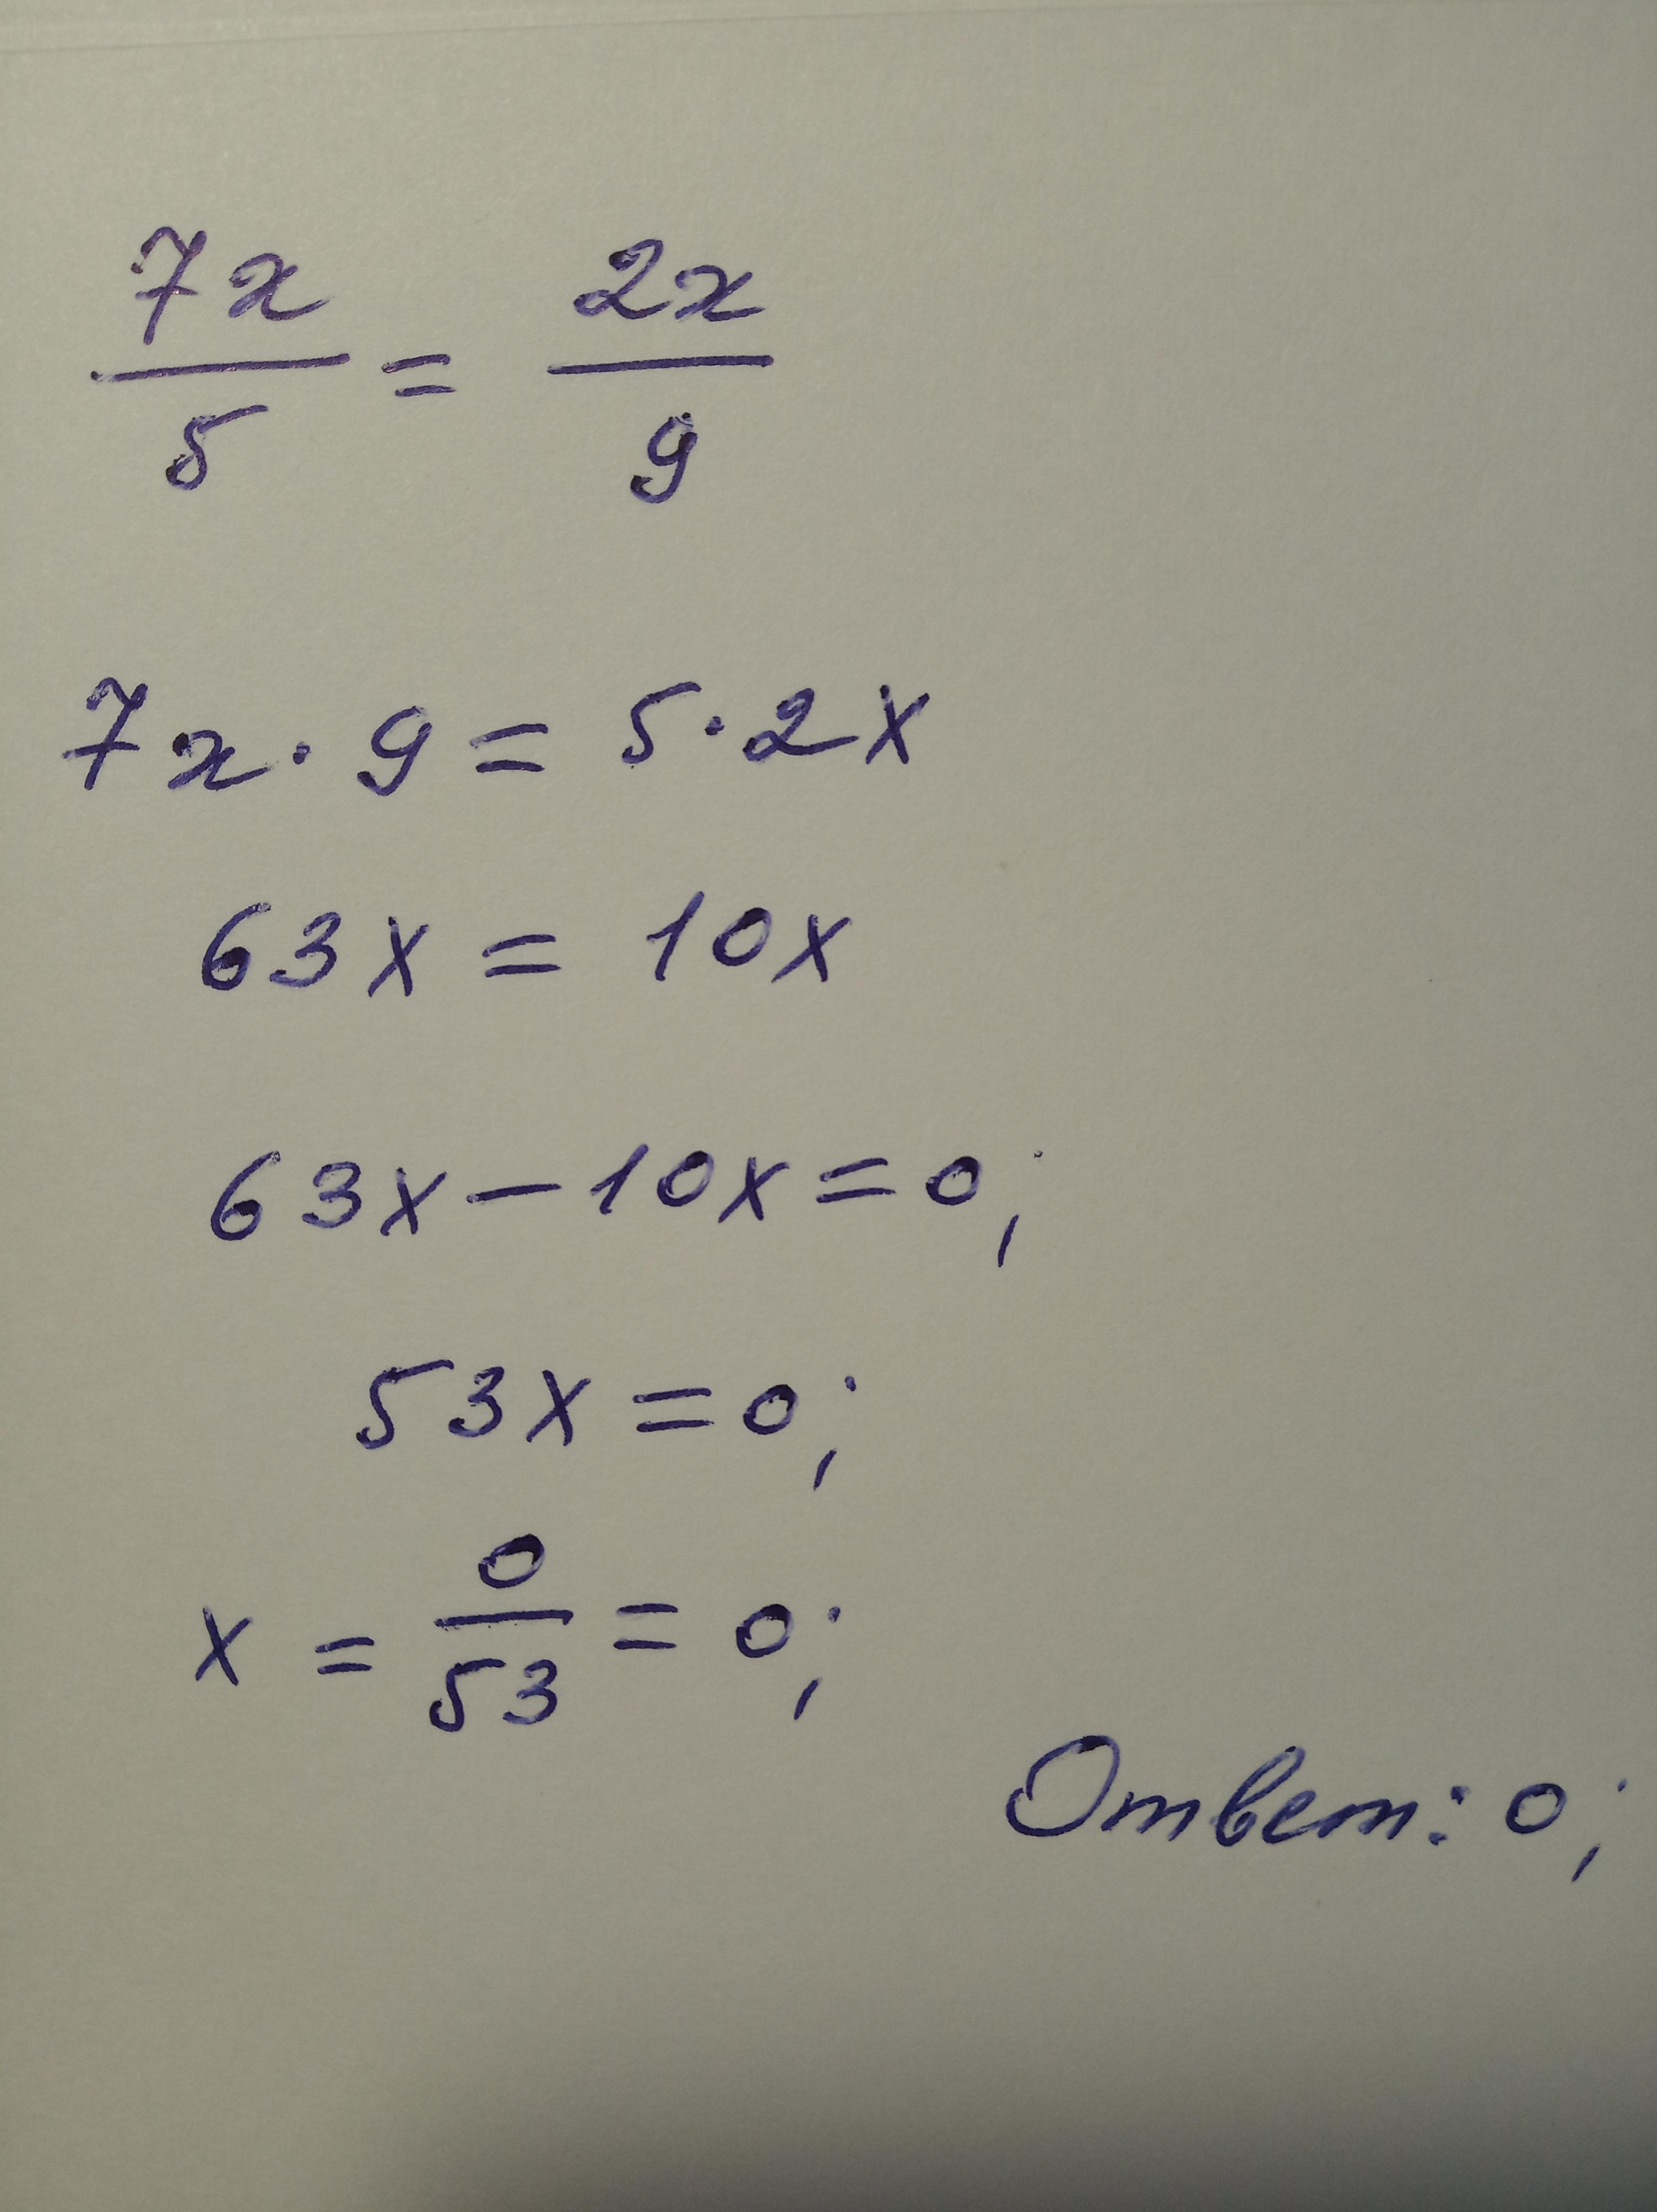 7x/5 = 2x/9
7x · 9 = 5 · 2x
63x = 10x
63x − 10x = 0;
53x = 0;
x = 0/53 = 0;
Ответ: 0;